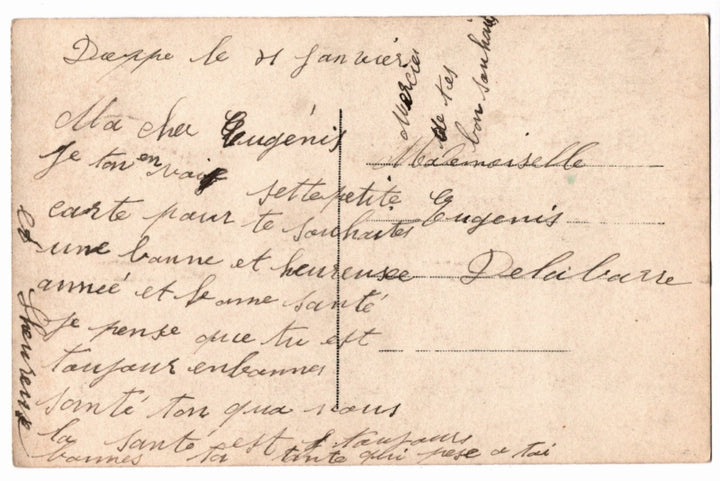 Dieppe le 21 Janvier
Ma cher Eugénis
Je ton envoi sette petite
carte pour te souhaites
une bonne et heureuse
année et bonne santé
je pense que tu est
toujour enbonnes
santé ton qua nous
la santé est toujours
bonnes ta tante qui pese a toi
et heureuse
Mercies
de tes
bon souhait
Mademoiselle
Eugénis
Delabarre